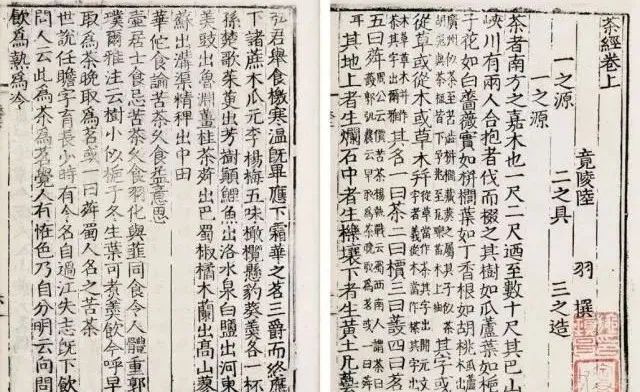 茶經卷上
竟陵陸 羽 撰
一之源 二之具 三之造
一之源
茶者南方之嘉木也一尺二尺迺至數十尺其巴山
峽川有兩人合抱者伐而掇之其樹如瓜蘆葉如梔
子花如白薔薇實如栟櫚葉如丁香根如胡桃瓜蘆
廣州似茶至苦澁栟櫚蒲葵之屬其子似
胡桃與茶根皆下孕兆至瓦礫苗木上抽其字或
從草或從木或草木并從草當作茶其字出開元文
字音義從木
本草草木并作
其名一曰茶二曰檟三曰蔎四曰
五曰荈周公云檟苦茶揚執戟云蜀西南人謂茶曰
蔎郭弘農云早取為茶晚取為茗或一曰荈
耳其地上者生爛石中者生櫟壤下者生黃土凡藝
弘君舉食檄寒溫旣畢應下霜華之茗三爵而終應
下諸蔗木瓜元李楊梅五味橄欖懸豹葵羹各一杯
孫楚歌茱萸出芳樹顛鯉魚出洛水泉白鹽出河東
美豉出魯淵薑桂茶荈出巴蜀椒橘木蘭出高山蓼
蘇出溝渠精稗出中田
華佗食論苦茶久食益意思
壺居士食忌苦茶久食羽化與韮同食令人體重郭
璞爾雅注云樹小似梔子冬生葉可煮羹飲今呼早
取為茶晚取為茗或一曰荈蜀人名之苦茶
世說任瞻字育長少時有令名自過江失志旣下飲
問人云此為茶為茗覺人有恠色乃自分明云向問
飲為熱為冷